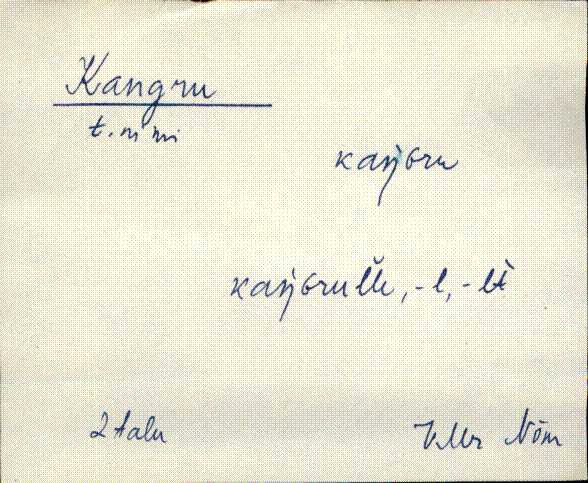 Kangru
t. nimi
kaŋ̀Gru
kaŋ̀Grulle, -l, -lt
2 talu
VMr Nõm